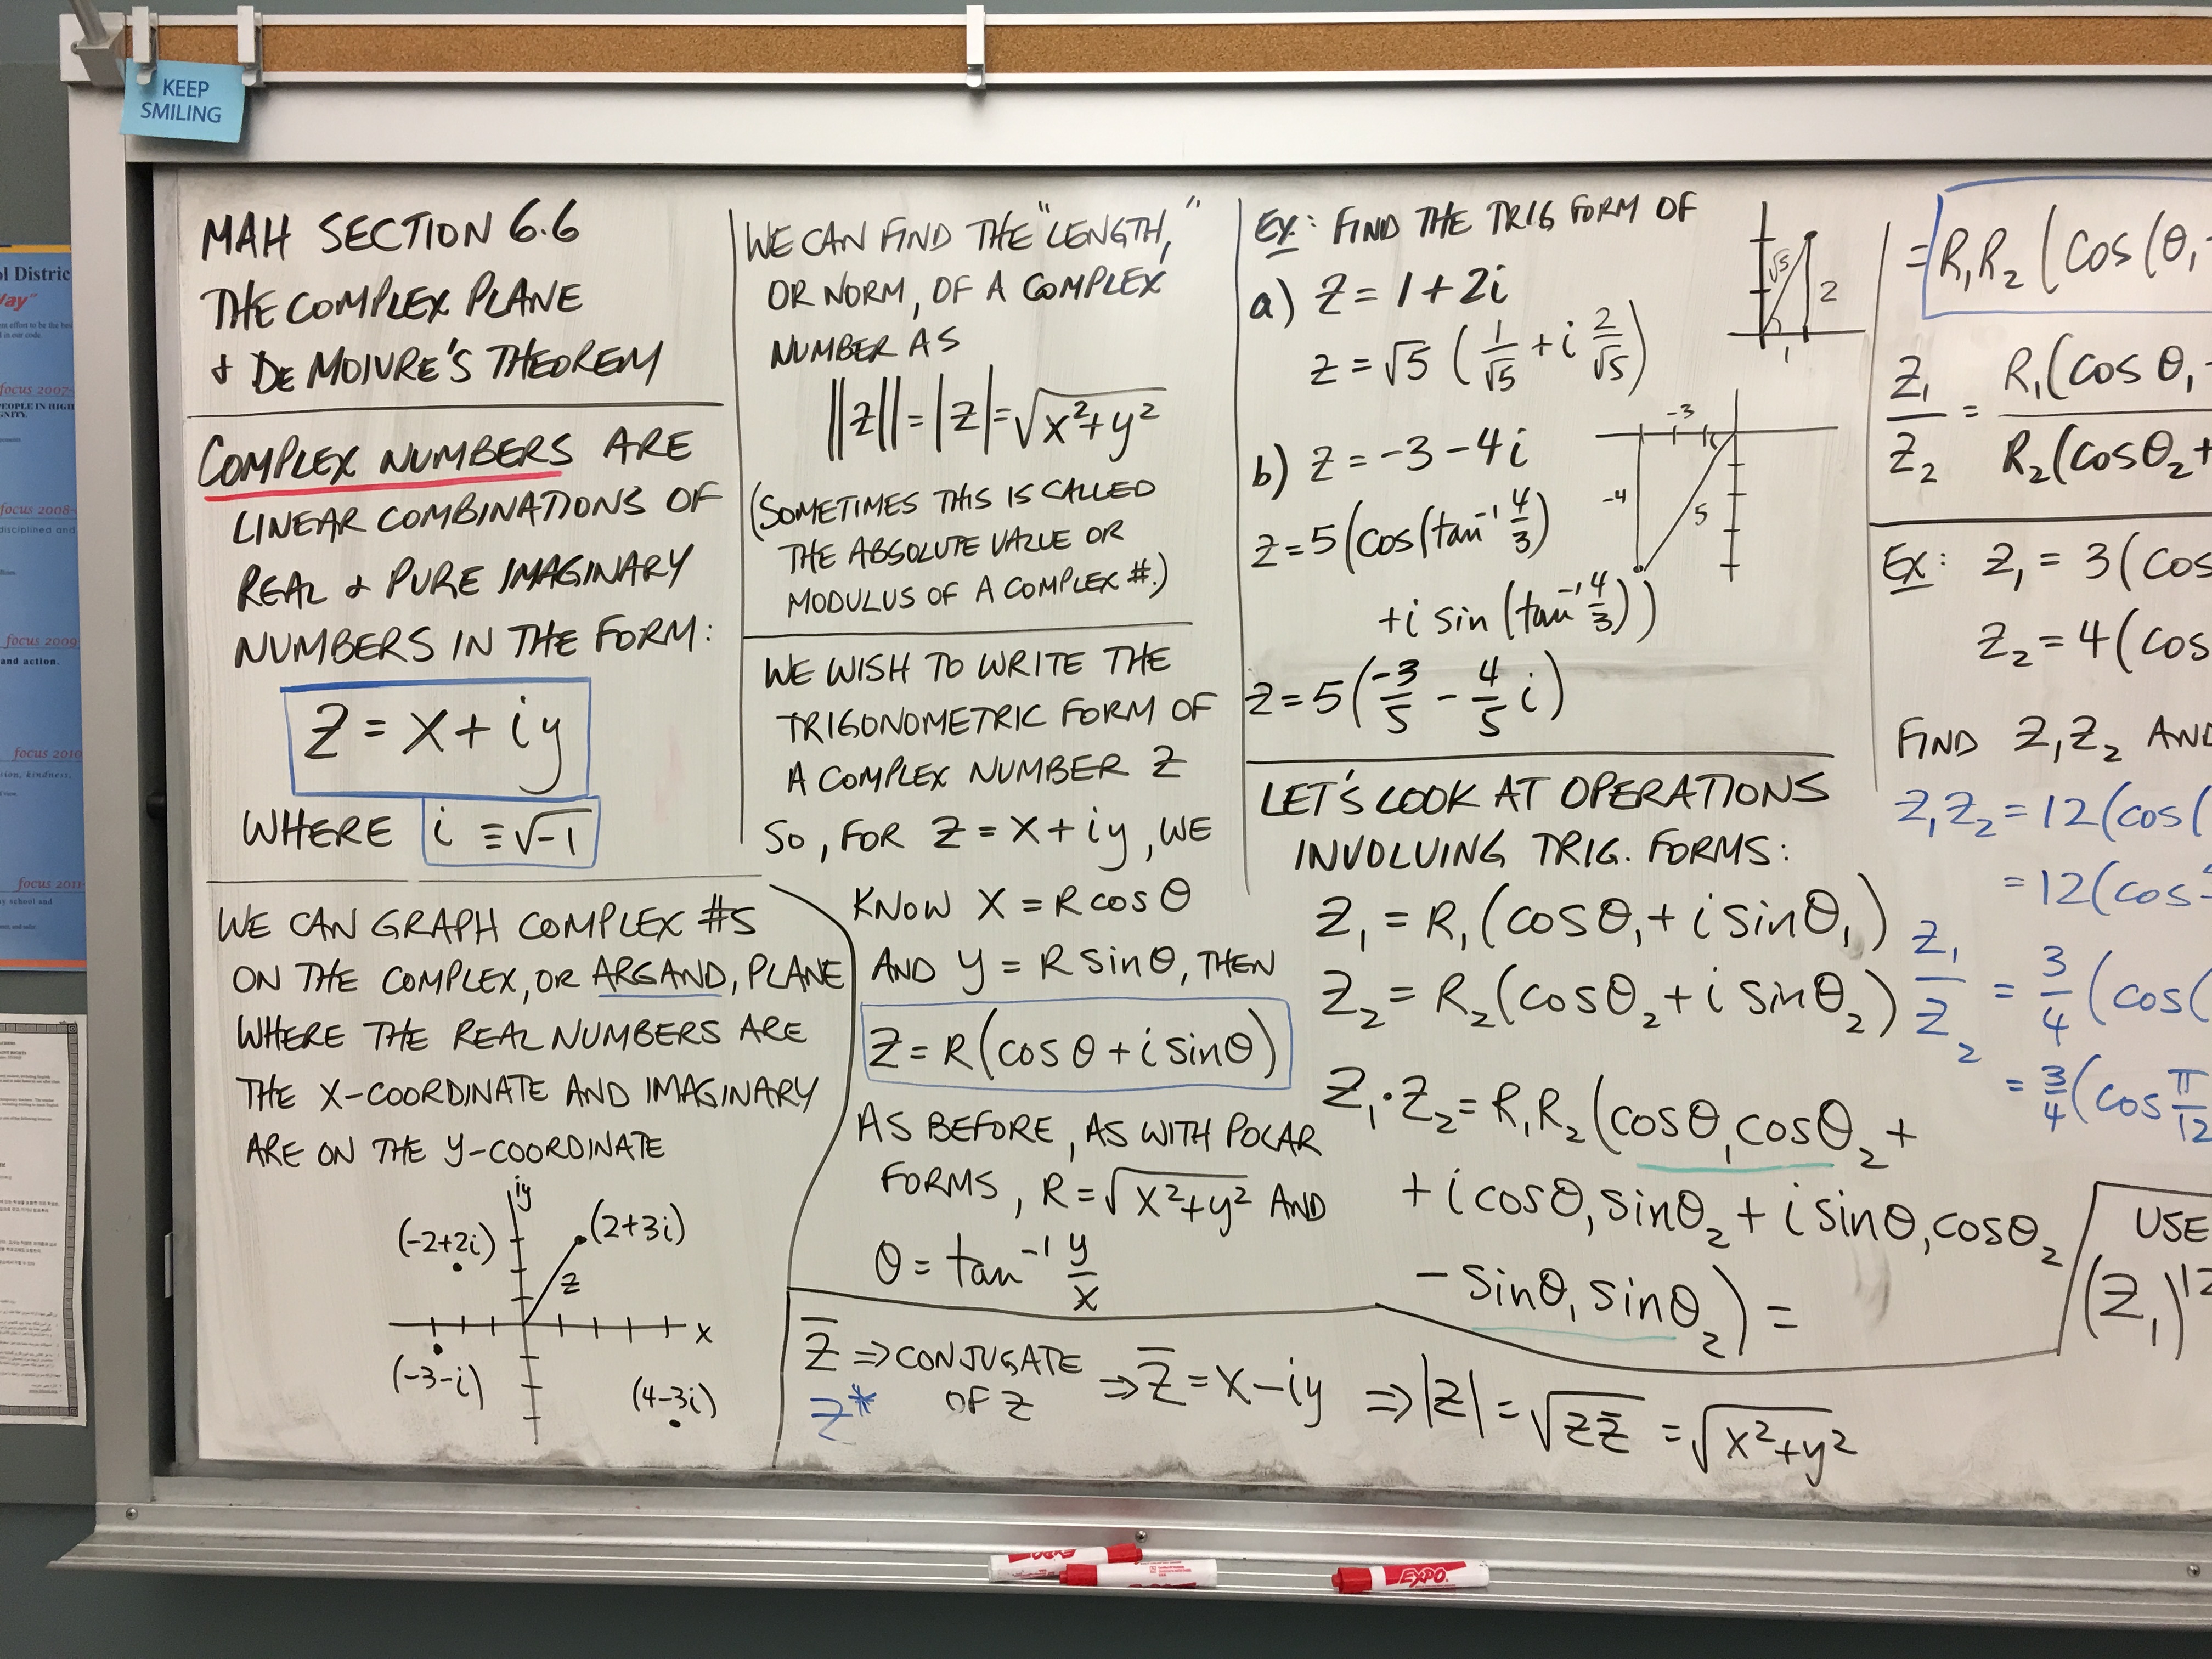 KEEP
SMILING
MAH SECTION 6.6
THE COMPLEX PLANE
& DE MOIVRE'S THEOREM
COMPLEX NUMBERS ARE
LINEAR COMBINATIONS OF
REAL & PURE IMAGINARY
NUMBERS IN THE FORM:
Z = X + iy
WHERE i ≡ √-1
WE CAN GRAPH COMPLEX #S
ON THE COMPLEX, OR ARGAND, PLANE
WHERE THE REAL NUMBERS ARE
THE X-COORDINATE AND IMAGINARY
ARE ON THE Y-COORDINATE
iy
(-2+2i)
(2+3i)
z
x
(-3-i)
(4-3i)
WE CAN FIND THE "LENGTH,"
OR NORM, OF A COMPLEX
NUMBER AS
||z|| = |z| = √x²+y²
(SOMETIMES THIS IS CALLED
THE ABSOLUTE VALUE OR
MODULUS OF A COMPLEX #.)
WE WISH TO WRITE THE
TRIGONOMETRIC FORM OF
A COMPLEX NUMBER Z
SO, FOR Z = X + iy, WE
KNOW X = R cos θ
AND Y = R sin θ, THEN
Z = R(cos θ + i sin θ)
AS BEFORE, AS WITH POLAR
FORMS, R = √x²+y² AND
θ = tan⁻¹ y/x
z̄ ⇒ CONJUGATE ⇒ z̄ = x-iy ⇒ |z| = √zz̄ = √x²+y²
z* OF Z
EX: FIND THE TRIG FORM OF
a) z = 1 + 2i
z = √5 (1/√5 + i 2/√5)
√5
2
1
b) z = -3 - 4i
z = 5(cos(tan⁻¹ 4/3)
+ i sin (tan⁻¹ 4/3))
z = 5(-3/5 - 4/5 i)
-3
-4
5
LET'S LOOK AT OPERATIONS
INVOLVING TRIG. FORMS:
Z₁ = R₁(cos θ₁ + i sin θ₁)
Z₂ = R₂(cos θ₂ + i sin θ₂)
Z₁·Z₂ = R₁R₂(cos θ₁ cos θ₂ +
+ i cos θ₁ sin θ₂ + i sin θ₁ cos θ₂
- sin θ₁ sin θ₂) =
= R₁R₂ (cos(θ₁
Z₁/Z₂ = R₁(cos θ₁ / R₂(cos θ₂ +
EX: Z₁ = 3(cos
Z₂ = 4(cos
FIND Z₁Z₂ AND
Z₁Z₂ = 12(cos(
= 12(cos
Z₁/Z₂ = 3/4 (cos(
= 3/4 (cos π/12
USE
(Z₁)¹²
EXPO
focus 2007-
PEOPLE IN HIGH
focus 2008-
focus 2009
and action.
focus 2010
focus 2011-